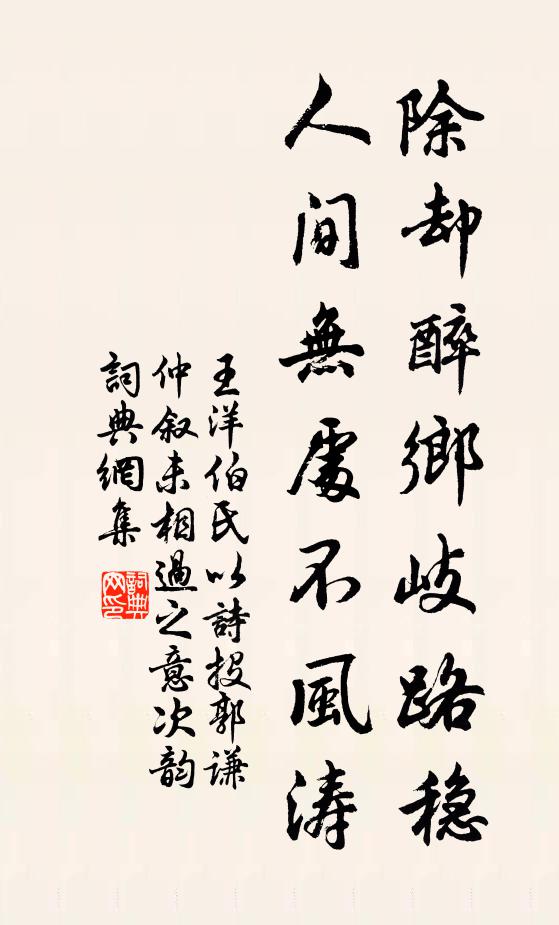 除却醉鄉岐路穏
人间無處不風涛
王洋伯氏以詩投郭谦
仲叙未相過之意次韵
詞典網集
詞典
网印